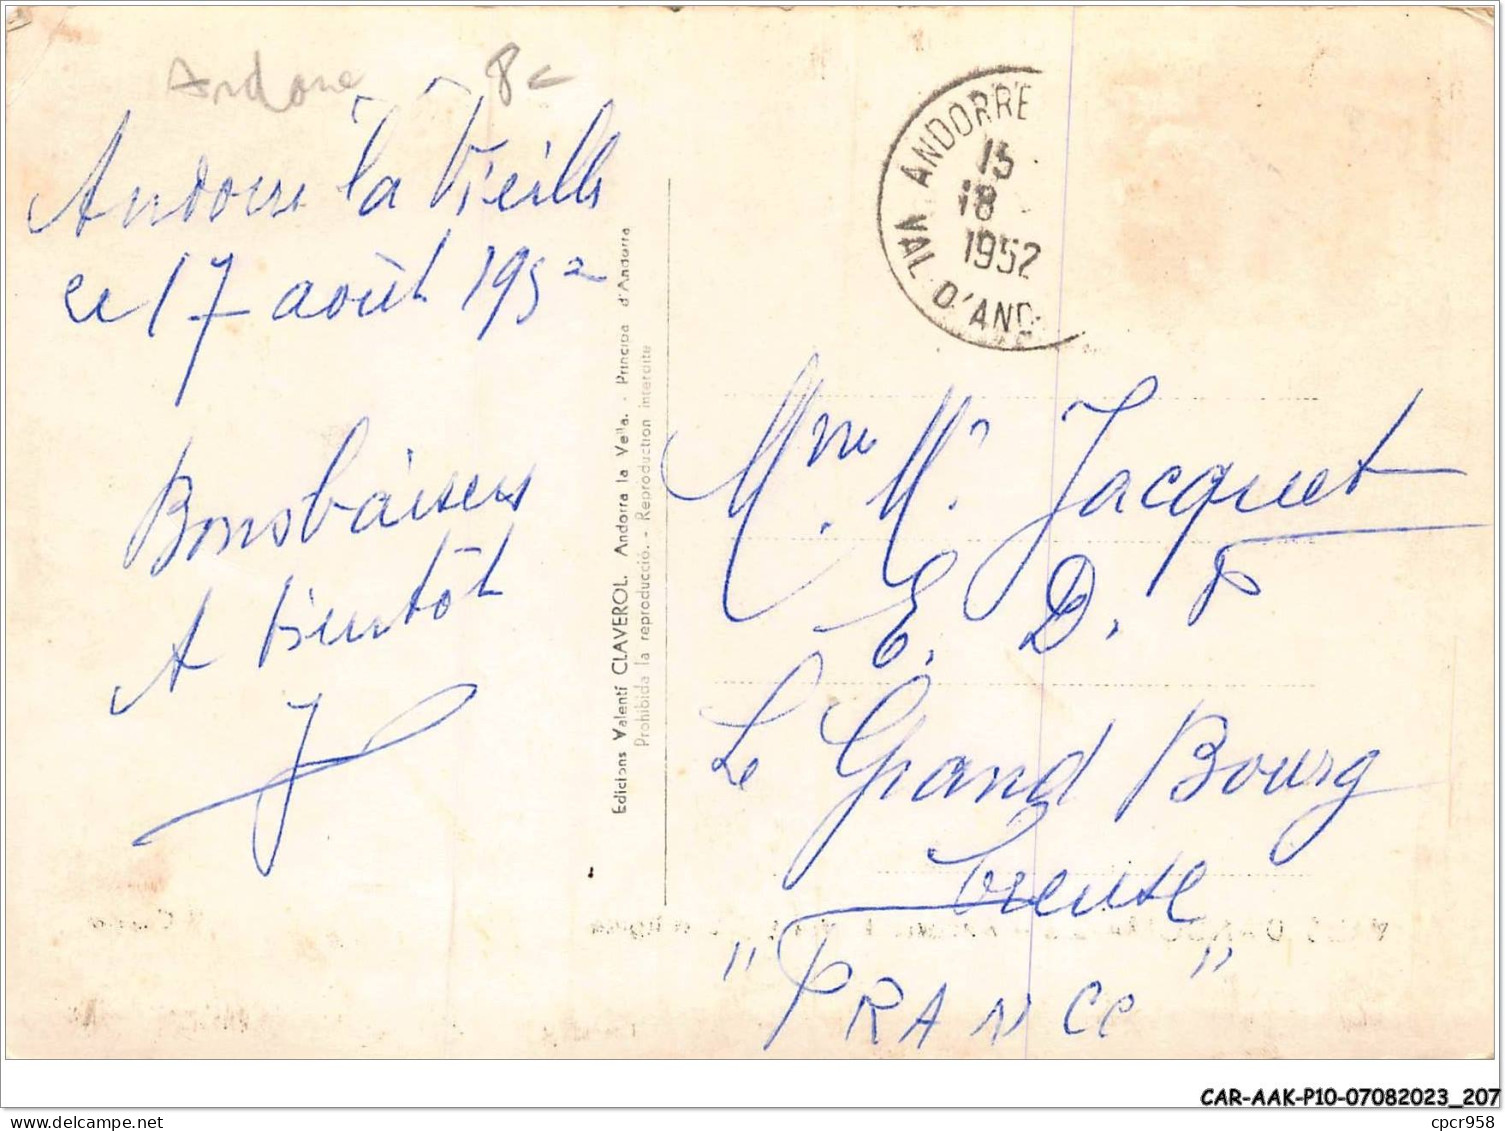 Andorre 8 c
Andorre la Vieille
ce 17 août 1952
Bons baisers
A bientôt
Edicions Valentí CLAVEROL. Andorra la Vella. - Principa d'Andorra
Prohibida la reproducció. - Reproduction interdite
ANDORRE
15
18
1952
VAL D'AND
Mme M. Jacquet
E. D. F
Le Grand Bourg
Creuse
"FRANCE"
CAR-AAK-P10-07082023_207
delcampe.net
cpcr958